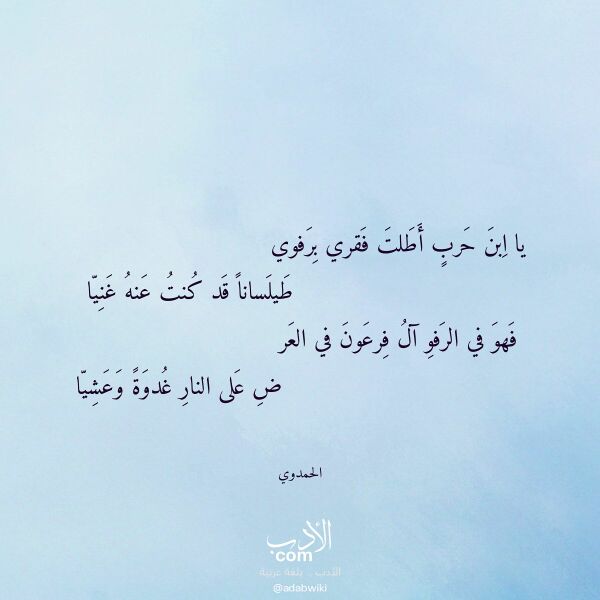 يا اِبنَ حَربٍ أَطَلتَ فَقري بِرَفوي
طَيلَساناً قَد كُنتُ عَنهُ غَنِيّا
فَهوَ في الرَفوِ آلُ فِرعَونَ في العَر
ضِ عَلى النارِ غُدوَةً وَعَشِيّا
الحمدوي
الأدب
com
الأدب .. بلغة عربية
@adabwiki